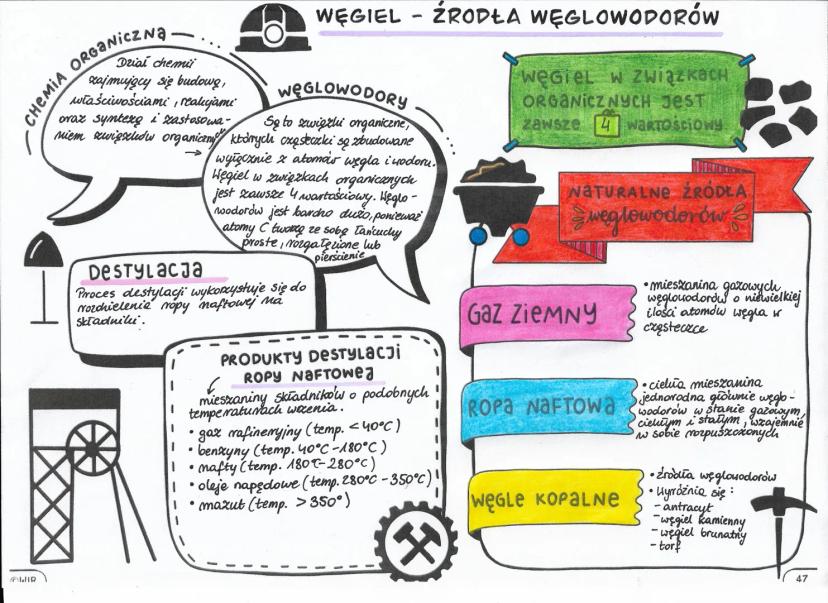 WĘGIEL - ŹRODŁA WĘGLOWODORÓW
CHEMIA ORGANICZNA
Dział chemii
zajmujący się budową,
właściwościami, reakcjami
oraz syntezą i zastosowa-
niem związków organicznych
WĘGLOWODORY
Są to związki organiczne,
których cząsteczki są zbudowane
wyłącznie z atomów węgla i wodoru.
Węgiel w związkach organicznych
jest zawsze 4 wartościowy. Węglo-
wodorów jest bardzo dużo, ponieważ
atomy C tworzą ze sobą łańcuchy
proste, rozgałęzione lub
pierścienie
DESTYLACJA
Proces destylacji wykorzystuje się do
rozdzielenia ropy naftowej na
składniki.
PRODUKTY DESTYLACJI
ROPY NAFTOWEJ
mieszaniny składników o podobnych
temperaturach wrzenia.
• gaz rafineryjny (temp. < 40°C)
• benzyny (temp. 40°C - 180°C)
• nafty (temp. 180°C - 280°C)
• oleje napędowe (temp. 280°C - 350°C)
• mazut (temp. > 350°)
WĘGIEL W ZWIĄZKACH
ORGANICZNYCH JEST
ZAWSZE 4 WARTOŚCIOWY
NATURALNE ŹRÓDŁA
węglowodorów
GAZ ZIEMNY
• mieszanina gazowych
węglowodorów o niewielkiej
ilości atomów węgla w
cząsteczce
ROPA NAFTOWA
• ciekła mieszanina
jednorodna głównie węglo-
wodorów w stanie gazowym,
ciekłym i stałym, wzajemnie
w sobie rozpuszczonych
WĘGLE KOPALNE
• źródła węglowodorów
• Wyróżnia się:
- antracyt
- węgiel kamienny
- węgiel brunatny
- torf
47